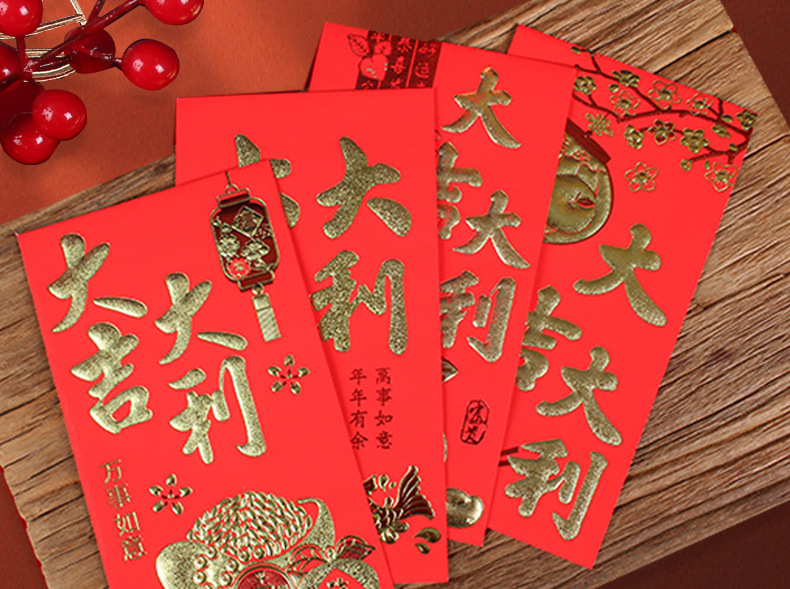 大吉
大利
万事如意
大
利
萬事如意
年年有余
大
吉
大利
大
吉
大利